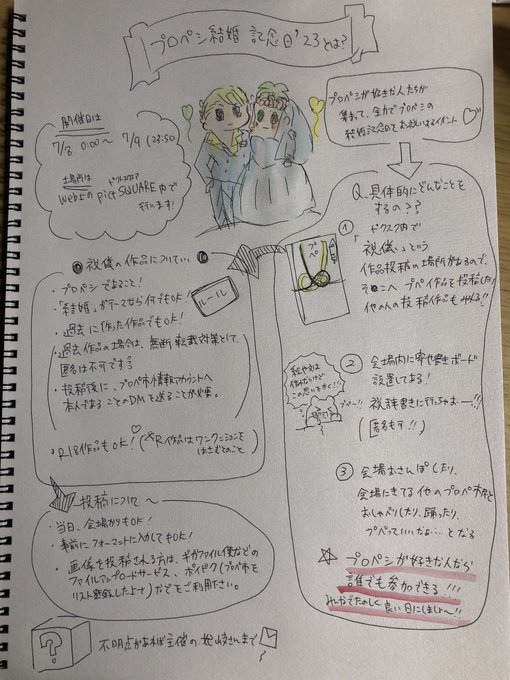 プロペシ結婚 記念日'23とは?
開催日は
7/8 0:00〜
7/9 (23:50)
場所は
Web上の pictSQUARE内で
行います!
プロペシが好きな人たちが
集まって、全力でプロペシの
結婚記念日をお祝いするイベント
Q.具体的にどんなことを
するの??
①
「祝儀」という
作品投稿の場所が出るので、
そこへ プペ作品を投稿したり
他の人の投稿作品もみれる!!
プペ
②
会場内に寄せ書きボード
設置してある!
祝辞書きに行っちゃおー!!
(匿名も可!!)
絵や文は
この思いをかく!!
③ 会場おさんぽしたり、
会場にきてる他のプロペ市民と
おしゃべりしたり、踊ったり
プペっていいなぁ…となる
☆プロペシが好きな人なら
誰でも参加できる!!!
みんなでたのしく良い日にしましょ〜!!
◎祝儀の作品について
ルール
・プロペシであること!
・「結婚」がテーマなら何でもOK!
・過去に作った作品でもOK!
(過去作品の場合は、無断転載対策として、
匿名は不可です
・投稿後に、プロペ市情報アカウントへ
本人であることのDMを送ることが必要。)
・R18作品もOK! (※R作品はワンクッションを
はさむとのこと)
投稿について〜
・当日、会場からもOK!
・事前にフォーマットに入力してもOK!
・画像を投稿される方は、ギガファイル便などの
ファイルアップロードサービス、ポイピク(プペ市を
リスト登録した上で)などをご利用下さい。
?
不明点があれば主催の
さんまで